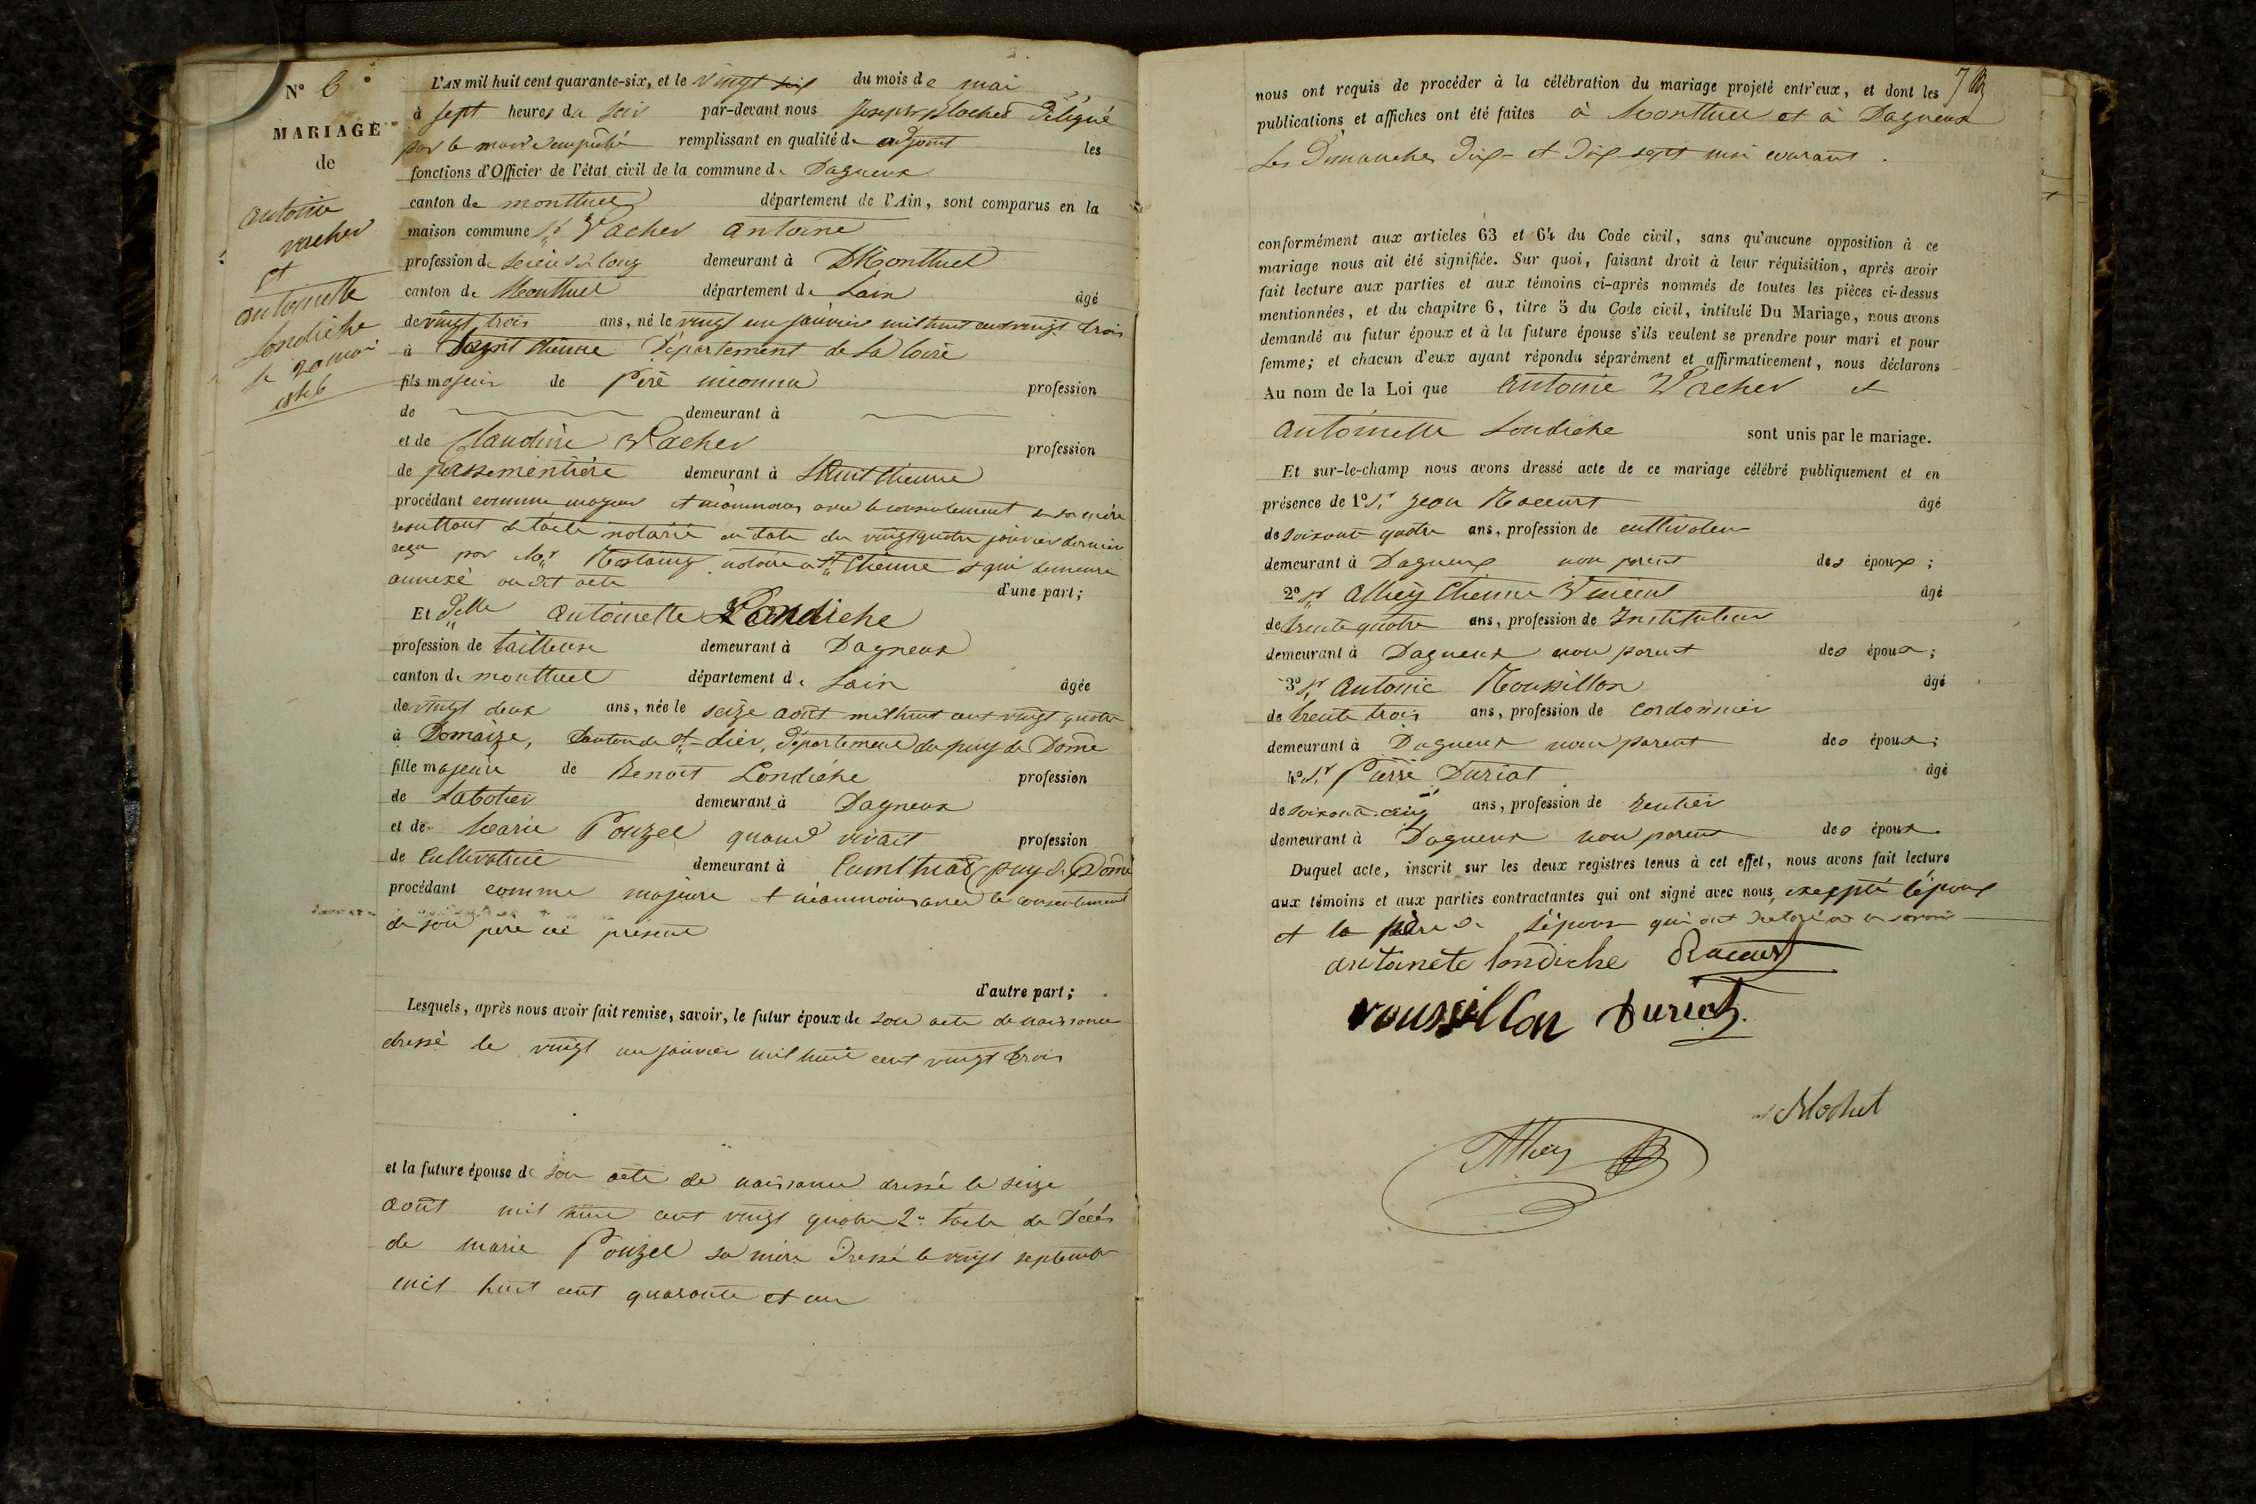 N° 6
MARIAGE
de
antoine
vacher
et
antoinette
londiche
le 20 mai
1846
L'AN mil huit cent quarante-six, et le vingt six du mois de mai
à sept heures du soir par-devant nous Joseph Blochet Délégué
par le maire empêché remplissant en qualité de adjoint les
fonctions d'Officier de l'état civil de la commune de Dagneux
canton de montluel département de l'Ain, sont comparus en la
maison commune Sr Vacher antoine
profession de scieur de long demeurant à Montluel
canton de Montluel département de Lain âgé
de vingt trois ans, né le vingt un janvier mil huit cent vingt trois
à Saint Etienne Département de la loire
fils majeur de Père inconnu profession
de demeurant à
et de Claudine Vacher profession
de passementière demeurant à Saint Etienne
procédant comme majeur et néanmoins avec le consentement de sa mère
resultant de l'acte notarié en date du vingt quatre janvier dernier
reçu par Mr notaire a St Etienne et qui demeure
annexé au dit acte d'une part;
Et Delle antoinette Londiche
profession de tailleuse demeurant à Dagneux
canton de montluel département de Lain âgée
de vingt deux ans, née le seize août mil huit cent vingt quatre
à Domaize, Canton de St-dier, département du puy de Dome
fille majeure de Benoit Londiche profession
de Sabotier demeurant à Dagneux
et de Marie Pouzel quand vivait profession
de Cultivatrice demeurant à Cunlhiat puy de Dome
procédant comme majeure et néanmoins avec le consentement
de son père ici présent
d'autre part;
Lesquels, après nous avoir fait remise, savoir, le futur époux de son acte de naissance
dressé le vingt un janvier mil huit cent vingt trois
et la future épouse de son acte de naissance dressé le seize
août mil huit cent vingt quatre 2° l'acte de Décés
de marie Pouzel sa mère Dressé le vingt septembre
mil huit cent quarante et un
nous ont requis de procéder à la célébration du mariage projeté entr'eux, et dont les
publications et affiches ont été faites à Montluel et à Dagneux
Les Dimanches Dix et Dix sept mai courant.
conformément aux articles 63 et 64 du Code civil, sans qu'aucune opposition à ce
mariage nous ait été signifiée. Sur quoi, faisant droit à leur réquisition, après avoir
fait lecture aux parties et aux témoins ci-après nommés de toutes les pièces ci-dessus
mentionnées, et du chapitre 6, titre 5 du Code civil, intitulé Du Mariage, nous avons
demandé au futur époux et à la future épouse s'ils veulent se prendre pour mari et pour
femme; et chacun d'eux ayant répondu séparément et affirmativement, nous déclarons
Au nom de la Loi que antoine Vacher et
antoinette Londiche sont unis par le mariage.
Et sur-le-champ nous avons dressé acte de ce mariage célébré publiquement et en
présence de 1° Sr Jean Racurt âgé
de soixante quatre ans, profession de cultivateur
demeurant à Dagneux non parent des époux;
2° Sr Alhey Etienne Vincent âgé
de trente quatre ans, profession de Instituteur
demeurant à Dagneux non parent des époux;
3° Sr antoine Roussillon âgé
de trente trois ans, profession de cordonnier
demeurant à Dagneux non parent des époux;
4° Sr Pierre Duriat âgé
de soixante cinq ans, profession de Rentier
demeurant à Dagneux non parent des époux
Duquel acte, inscrit sur les deux registres tenus à cet effet, nous avons fait lecture
aux témoins et aux parties contractantes qui ont signé avec nous, excepté l'époux
et le père de l'épouse qui ont déclaré ne savoir
antoinete londiche Racurt
roussillon Duriat
Blochet
Alhey